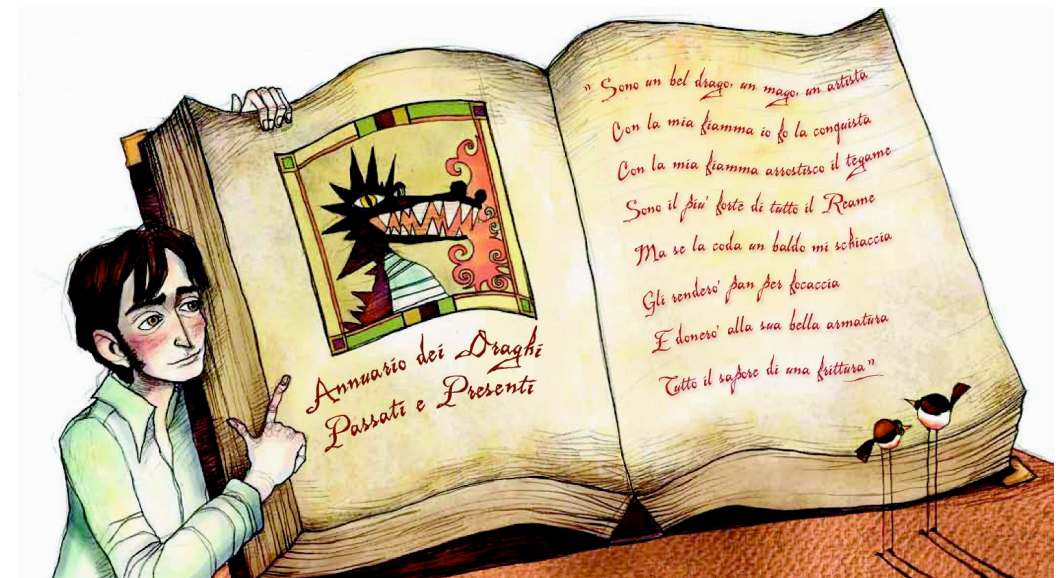 Annuario dei Draghi
Passati e Presenti
"Sono un bel drago, un mago, un artista
Con la mia fiamma io fo la conquista
Con la mia fiamma arrostisco il tegame
Sono il piu' forte di tutto il Reame
Ma se la coda un baldo mi schiaccia
Gli rendero' pan per focaccia
E donero' alla sua bella armatura
Tutto il sapore di una frittura"